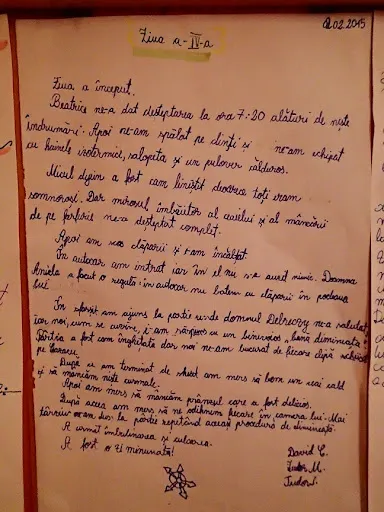 02.02.2015
Ziua a-IV-a
Ziua a început.
Beatrice ne-a dat deșteptarea la ora 7:20 alături de niște
îndrumări. Apoi ne-am spălat pe dinți și ne-am echipat
cu hainele izotermici, salopeta și un pulover călduros.
Micul dejun a fost cam liniștit deoarece toți eram
somnoroși. Dar mirosul îmbietor al ceaiului și al mâncării
de pe farfurie ne-a deșteptat complet.
Apoi am scos clăparii și i-am încălțat.
În autocar am intrat iar în el nu s-a auzit nimic. Doamna
Aniela a făcut o regulă: în autocar nu batem cu clăparii în podeaua
lui.
În sfârșit am ajuns la pârtie unde domnul ne-a salutat
iar noi, cum se cuvine, i-am răspuns cu un binevoios „bună dimineața”.
Pârtia a fost cam înghețată dar noi ne-am bucurat de fiecare clipă
pe
După ce am terminat de schiat am mers să bem un ceai cald
și să mâncăm niște
Apoi am mers să mâncăm prânzul care a fost delicios.
După aceea am mers să ne odihnim fiecare în camera lui. Mai
târziu ne-am dus la pârtie repetând aceeași procedură de dimineață.
A urmat întâlnirea și culcarea.
A fost o zi minunată!
David C.
Tudor M.
Tudor